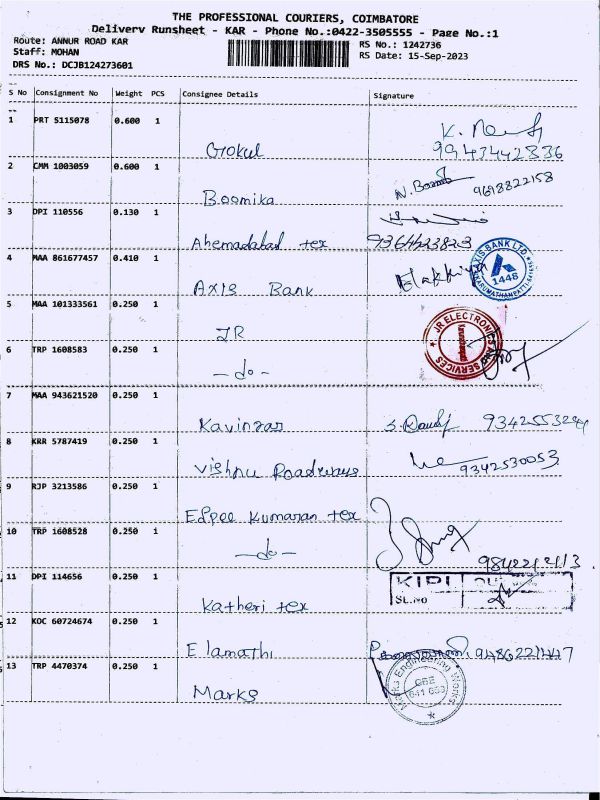 THE PROFESSIONAL COURIERS, COIMBATORE
Delivery Runsheet - KAR - Phone No.:0422-3505555 - Page No.:1
Route: ANNUR ROAD KAR RS No.: 1242736
Staff: MOHAN RS Date: 15-Sep-2023
DRS No.: DCJB124273601
S No Consignment No Weight PCS Consignee Details Signature
1 PRT 5115078 0.600 1 Gokul
9943442836
2 CMM 1003059 0.600 1 Boomika N. Boomi 9618822158
3 DPI 110556 0.130 1 Ahemadabad tex 9364423823
4 MAA 861677457 0.410 1 AXIS Bank AXIS BANK LTD 1448
5 MAA 101333561 0.250 1 JR JR ELECTRONICS AND SERVICES
6 TRP 1608583 0.250 1 -do-
7 MAA 943621520 0.250 1 Kavinrar
8 KRR 5787419 0.250 1 Vishnu Roadways 9342530053
9 RJP 3213586 0.250 1 Eppee Kumaran tex
10 TRP 1608528 0.250 1 -do-
11 DPI 114656 0.250 1 Katheri tex
SL.No
12 KOC 60724674 0.250 1 Elamathi 9486221447
13 TRP 4470374 0.250 1 Marks Marks Engineering Works CBE